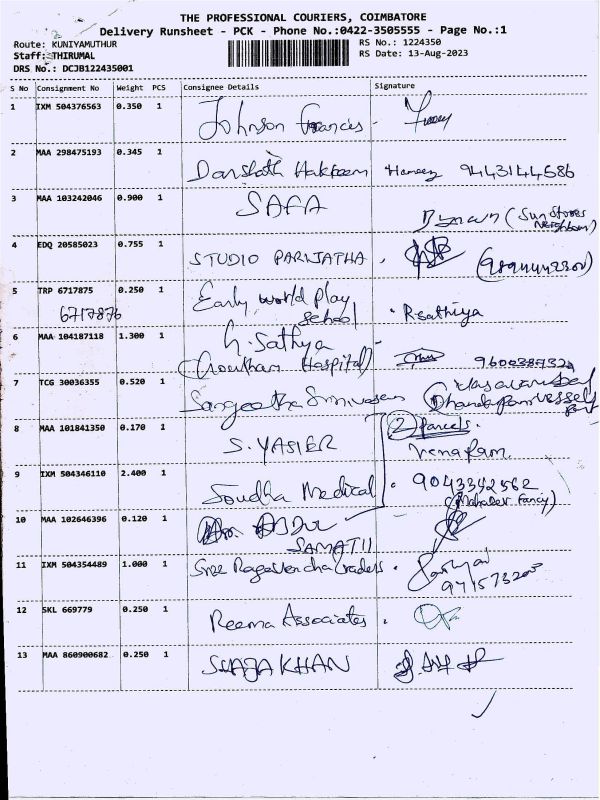 THE PROFESSIONAL COURIERS, COIMBATORE
Delivery Runsheet - PCK - Phone No.:0422-3505555 - Page No.:1
Route: KUNIYAMUTHUR
RS No.: 1224350
Staff: THIRUMAL
RS Date: 13-Aug-2023
DRS No.: DCJB122435001
S No Consignment No Weight PCS Consignee Details Signature
1 IXM 504376563 0.350 1 Johnson Francis
2 MAA 298475193 0.345 1 Darshath Hakkeem 9443144586
3 MAA 103242046 0.900 1 SAFA
(Sun Stores
Neighbour)
4 EDQ 20585023 0.755 1 STUDIO PARIJATHA
5 TRP 6717875 0.250 1 Early world play
School
Rsathiya
6717876
6 MAA 104187118 1.300 1 G. Sathya
(Gowtham Hospital)
7 TCG 30036355 0.520 1 Sangeetha Srinivasan
8 MAA 101841350 0.170 1 S. YASIER
2 Parcels.
9 IXM 504346110 2.400 1 Soudha Medical
9043342562
(Mahadev Fancy)
10 MAA 102646396 0.120 1
11 IXM 504354489 1.000 1 Sree Ragavendha traders
12 SKL 669779 0.250 1 Reema Associates
13 MAA 860900682 0.250 1 SHAJAKHAN